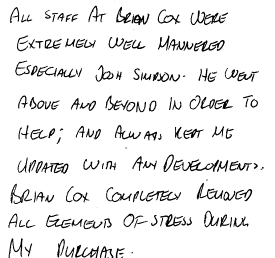 ALL STAFF AT BRIAN COX WERE
EXTREMELY WELL MANNERED
ESPECIALLY JOSH SIMPSON. HE WENT
ABOVE AND BEYOND IN ORDER TO
HELP; AND ALWAYS KEPT ME
UPDATED WITH ANY DEVELOPMENTS.
BRIAN COX COMPLETELY REMOVED
ALL ELEMENTS OF STRESS DURING
MY PURCHASE.